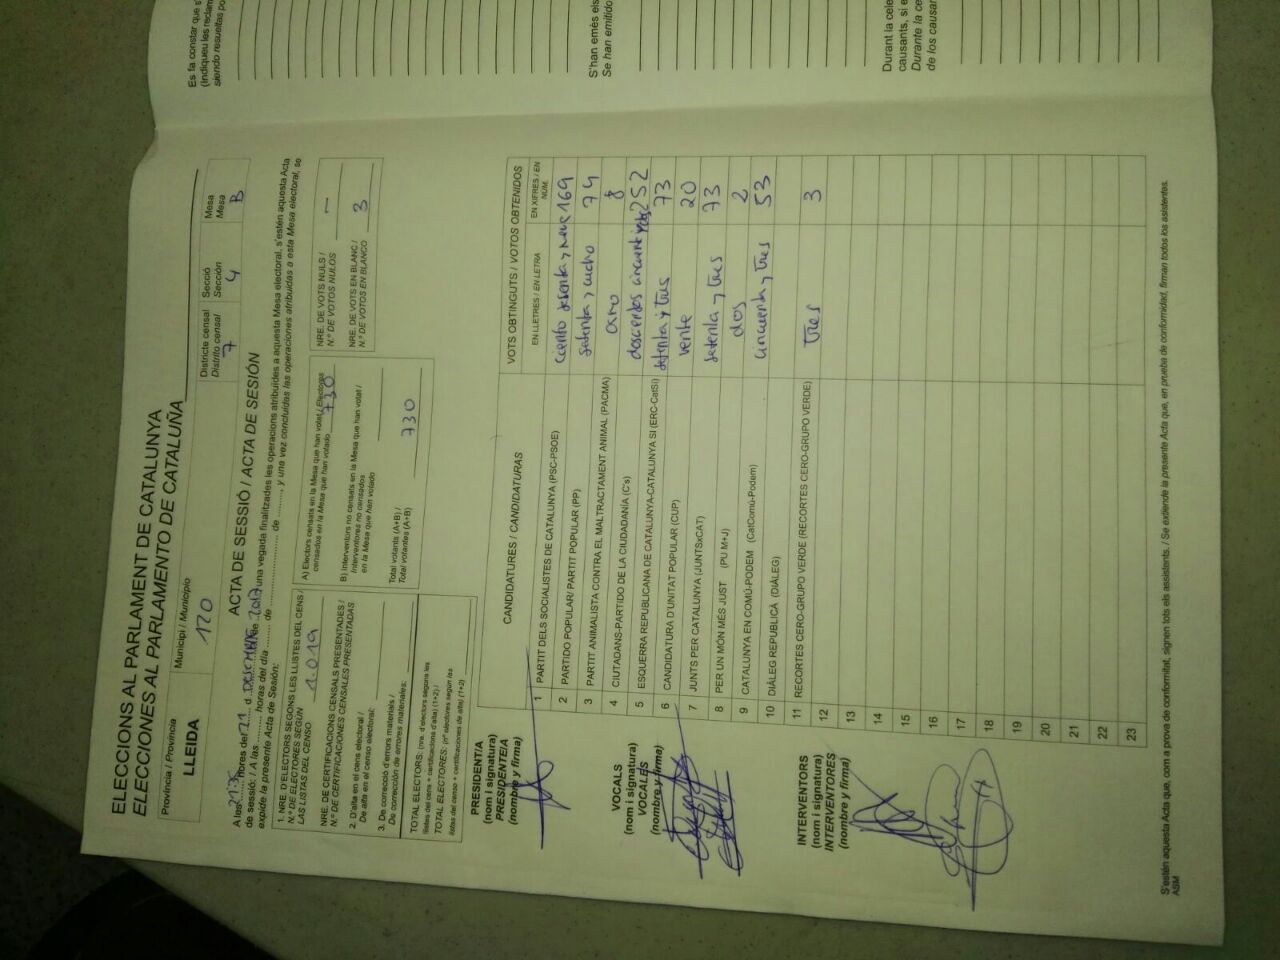 Es fa constar que s'
(Indiqueu les reclam
siendo resueltas po
S'han emès els
Se han emitido
Durant la cele
causants, si e
Durante la ce
de los causan
ELECCIONS AL PARLAMENT DE CATALUNYA
ELECCIONES AL PARLAMENTO DE CATALUÑA
Província / Provincia
LLEIDA
Municipi / Municipio
120
Districte censal
Distrito censal
7
Secció
Sección
4
Mesa
Mesa
B
ACTA DE SESSIÓ / ACTA DE SESIÓN
A les hores del 21 d una vegada finalitzades les operacions atribuïdes a aquesta Mesa electoral, s'estén aquesta Acta
de sessió: / A las horas del día de de y una vez concluidas las operaciones atribuidas a esta Mesa electoral, se
expide la presente Acta de Sesión:
1. NRE. D'ELECTORS SEGONS LES LLISTES DEL CENS /
N.º DE ELECTORES SEGÚN
LAS LISTAS DEL CENSO 1.019
NRE. DE CERTIFICACIONS CENSALS PRESENTADES /
N.º DE CERTIFICACIONES CENSALES PRESENTADAS
2. D'alta en el cens electoral /
De alta en el censo electoral:
3. De correcció d'errors materials /
De corrección de errores materiales:
TOTAL ELECTORS: (nre. d'electors segons les
llistes del cens + certificacions d'alta) (1+2) /
TOTAL ELECTORES: (nº electores según las
listas del censo + certificaciones de alta) (1+2)
A) Electors censats en la Mesa que han votat / Electores
censados en la Mesa que han votado 730
B) Interventors no censats en la Mesa que han votat /
Interventores no censados
en la Mesa que han votado
Total votants (A+B) /
Total votantes (A+B) 730
NRE. DE VOTS NULS /
N.º DE VOTOS NULOS —
NRE. DE VOTS EN BLANC /
N.º DE VOTOS EN BLANCO 3
CANDIDATURES / CANDIDATURAS
VOTS OBTINGUTS / VOTOS OBTENIDOS
EN LLETRES / EN LETRA
EN XIFRES / EN NÚM.
1 PARTIT DELS SOCIALISTES DE CATALUNYA (PSC-PSOE) ciento sesenta y nueve 169
2 PARTIDO POPULAR/ PARTIT POPULAR (PP) setenta y cuatro 74
3 PARTIT ANIMALISTA CONTRA EL MALTRACTAMENT ANIMAL (PACMA) ocho 8
4 CIUTADANS-PARTIDO DE LA CIUDADANÍA (C's) doscientos cincuenta y dos 252
5 ESQUERRA REPUBLICANA DE CATALUNYA-CATALUNYA SÍ (ERC-CatSí) setenta y tres 73
6 CANDIDATURA D'UNITAT POPULAR (CUP) veinte 20
7 JUNTS PER CATALUNYA (JUNTSxCAT) setenta y tres 73
8 PER UN MÓN MÉS JUST (PU M+J) dos 2
9 CATALUNYA EN COMÚ-PODEM (CatComú-Podem) cincuenta y tres 53
10 DIÀLEG REPUBLICÀ (DIÀLEG)
11 RECORTES CERO-GRUPO VERDE (RECORTES CERO-GRUPO VERDE) tres 3
12
13
14
15
16
17
18
19
20
21
22
23
PRESIDENT/A
(nom i signatura)
PRESIDENTE/A
(nombre y firma)
VOCALS
(nom i signatura)
VOCALES
(nombre y firma)
INTERVENTORS
(nom i signatura)
INTERVENTORES
(nombre y firma)
S'estén aquesta Acta que, com a prova de conformitat, signen tots els assistents. / Se extiende la presente Acta que, en prueba de conformidad, firman todos los asistentes.
ABM